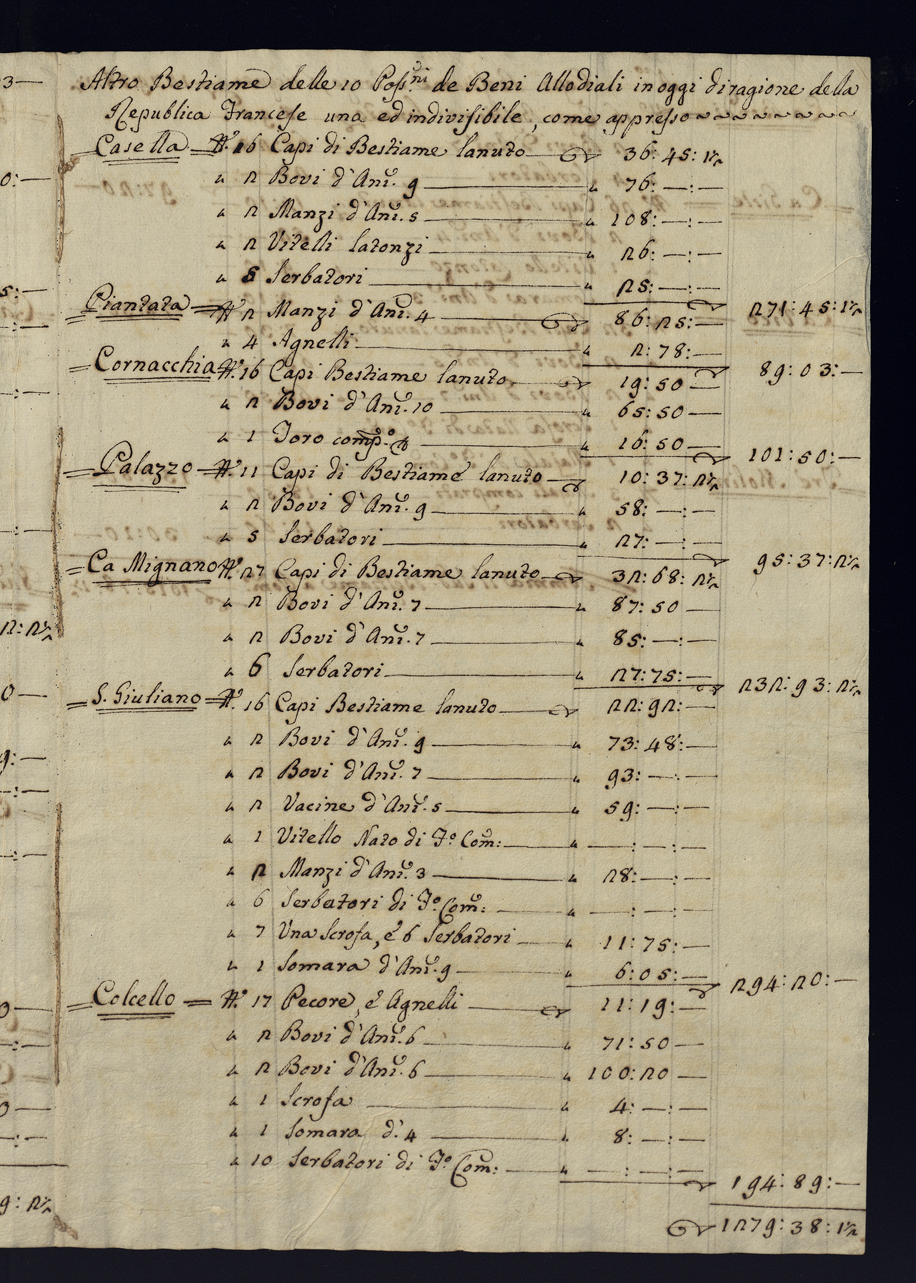 Altro Bestiame delle 10 Poss.ni de Beni Allodiali in oggi di ragione della
Republica Francese una ed indivisibile, come appresso
Casella N.° 16 Capi di Bestiame lanuto 36:45:1/2
" 2 Bovi d'Anni. 9 " 76:—:—
" 2 Manzi d'Anni. 5 " 108:—:—
" 2 Vitelli latonzi " 26:—:—
" 5 Serbatori " 25:—:— 271:45:1/2
Piantata N.° 2 Manzi d'Anni. 4 86:25:—
" 4 Agnelli " 2:78:— 89:03:—
Cornacchia N.° 16 Capi Bestiame lanuto 19:50—
" 2 Bovi d'Anni. 10 " 65:50—
" 1 Toro " 16:50— 101:50:—
Palazzo N.° 11 Capi di Bestiame lanuto 10:37:1/2
" 2 Bovi d'Anni. 9 " 58:—:—
" 5 Serbatori " 27:—:— 95:37:1/2
Ca Mignano N.° 27 Capi di Bestiame lanuto 32:68:1/2
" 2 Bovi d'Anni. 7 " 87:50—
" 2 Bovi d'Anni. 7 " 85:—:—
" 6 Serbatori " 27:75:— 232:93:1/2
S. Giuliano N.° 16 Capi Bestiame lanuto 22:92:—
" 2 Bovi d'Anni. 9 " 73:48:—
" 2 Bovi d'Anni. 7 " 93:—:—
" 2 Vacine d'Anni. 5 " 59:—:—
" 1 Vitello Nato di F.° Com: " —:—:—
" 2 Manzi d'Anni. 3 " 28:—:—
" 6 Serbatori di F.° Com: " —:—:—
" 7 Una Scrofa, e' 6 Serbatori " 11:75:—
" 1 Somara d'Anni. 9 " 6:05:— 294:20:—
Colcello N.° 17 Pecore, e' Agnelli 11:19:—
" 2 Bovi d'Anni. 6 " 71:50—
" 2 Bovi d'Anni. 6 " 100:20—
" 1 Scrofa " 4:—:—
" 1 Somara d'. 4 " 8:—:—
" 10 Serbatori di F.° Com: " —:—:— 194:89:—
1279:38:1/2